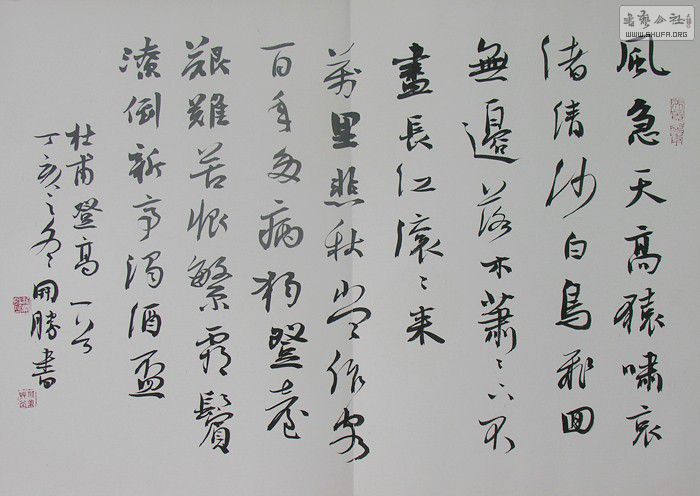 風急天高猿嘯哀
渚清沙白鳥飛回
無邊落木蕭々下不
盡長江滾々來
萬里悲秋常作客
百年多病獨登臺
艱難苦恨繁霜鬢
潦倒新亭濁酒盃
杜甫登高一首
丁亥之冬開勝書
书艺公社
WWW.SHUFA.ORG